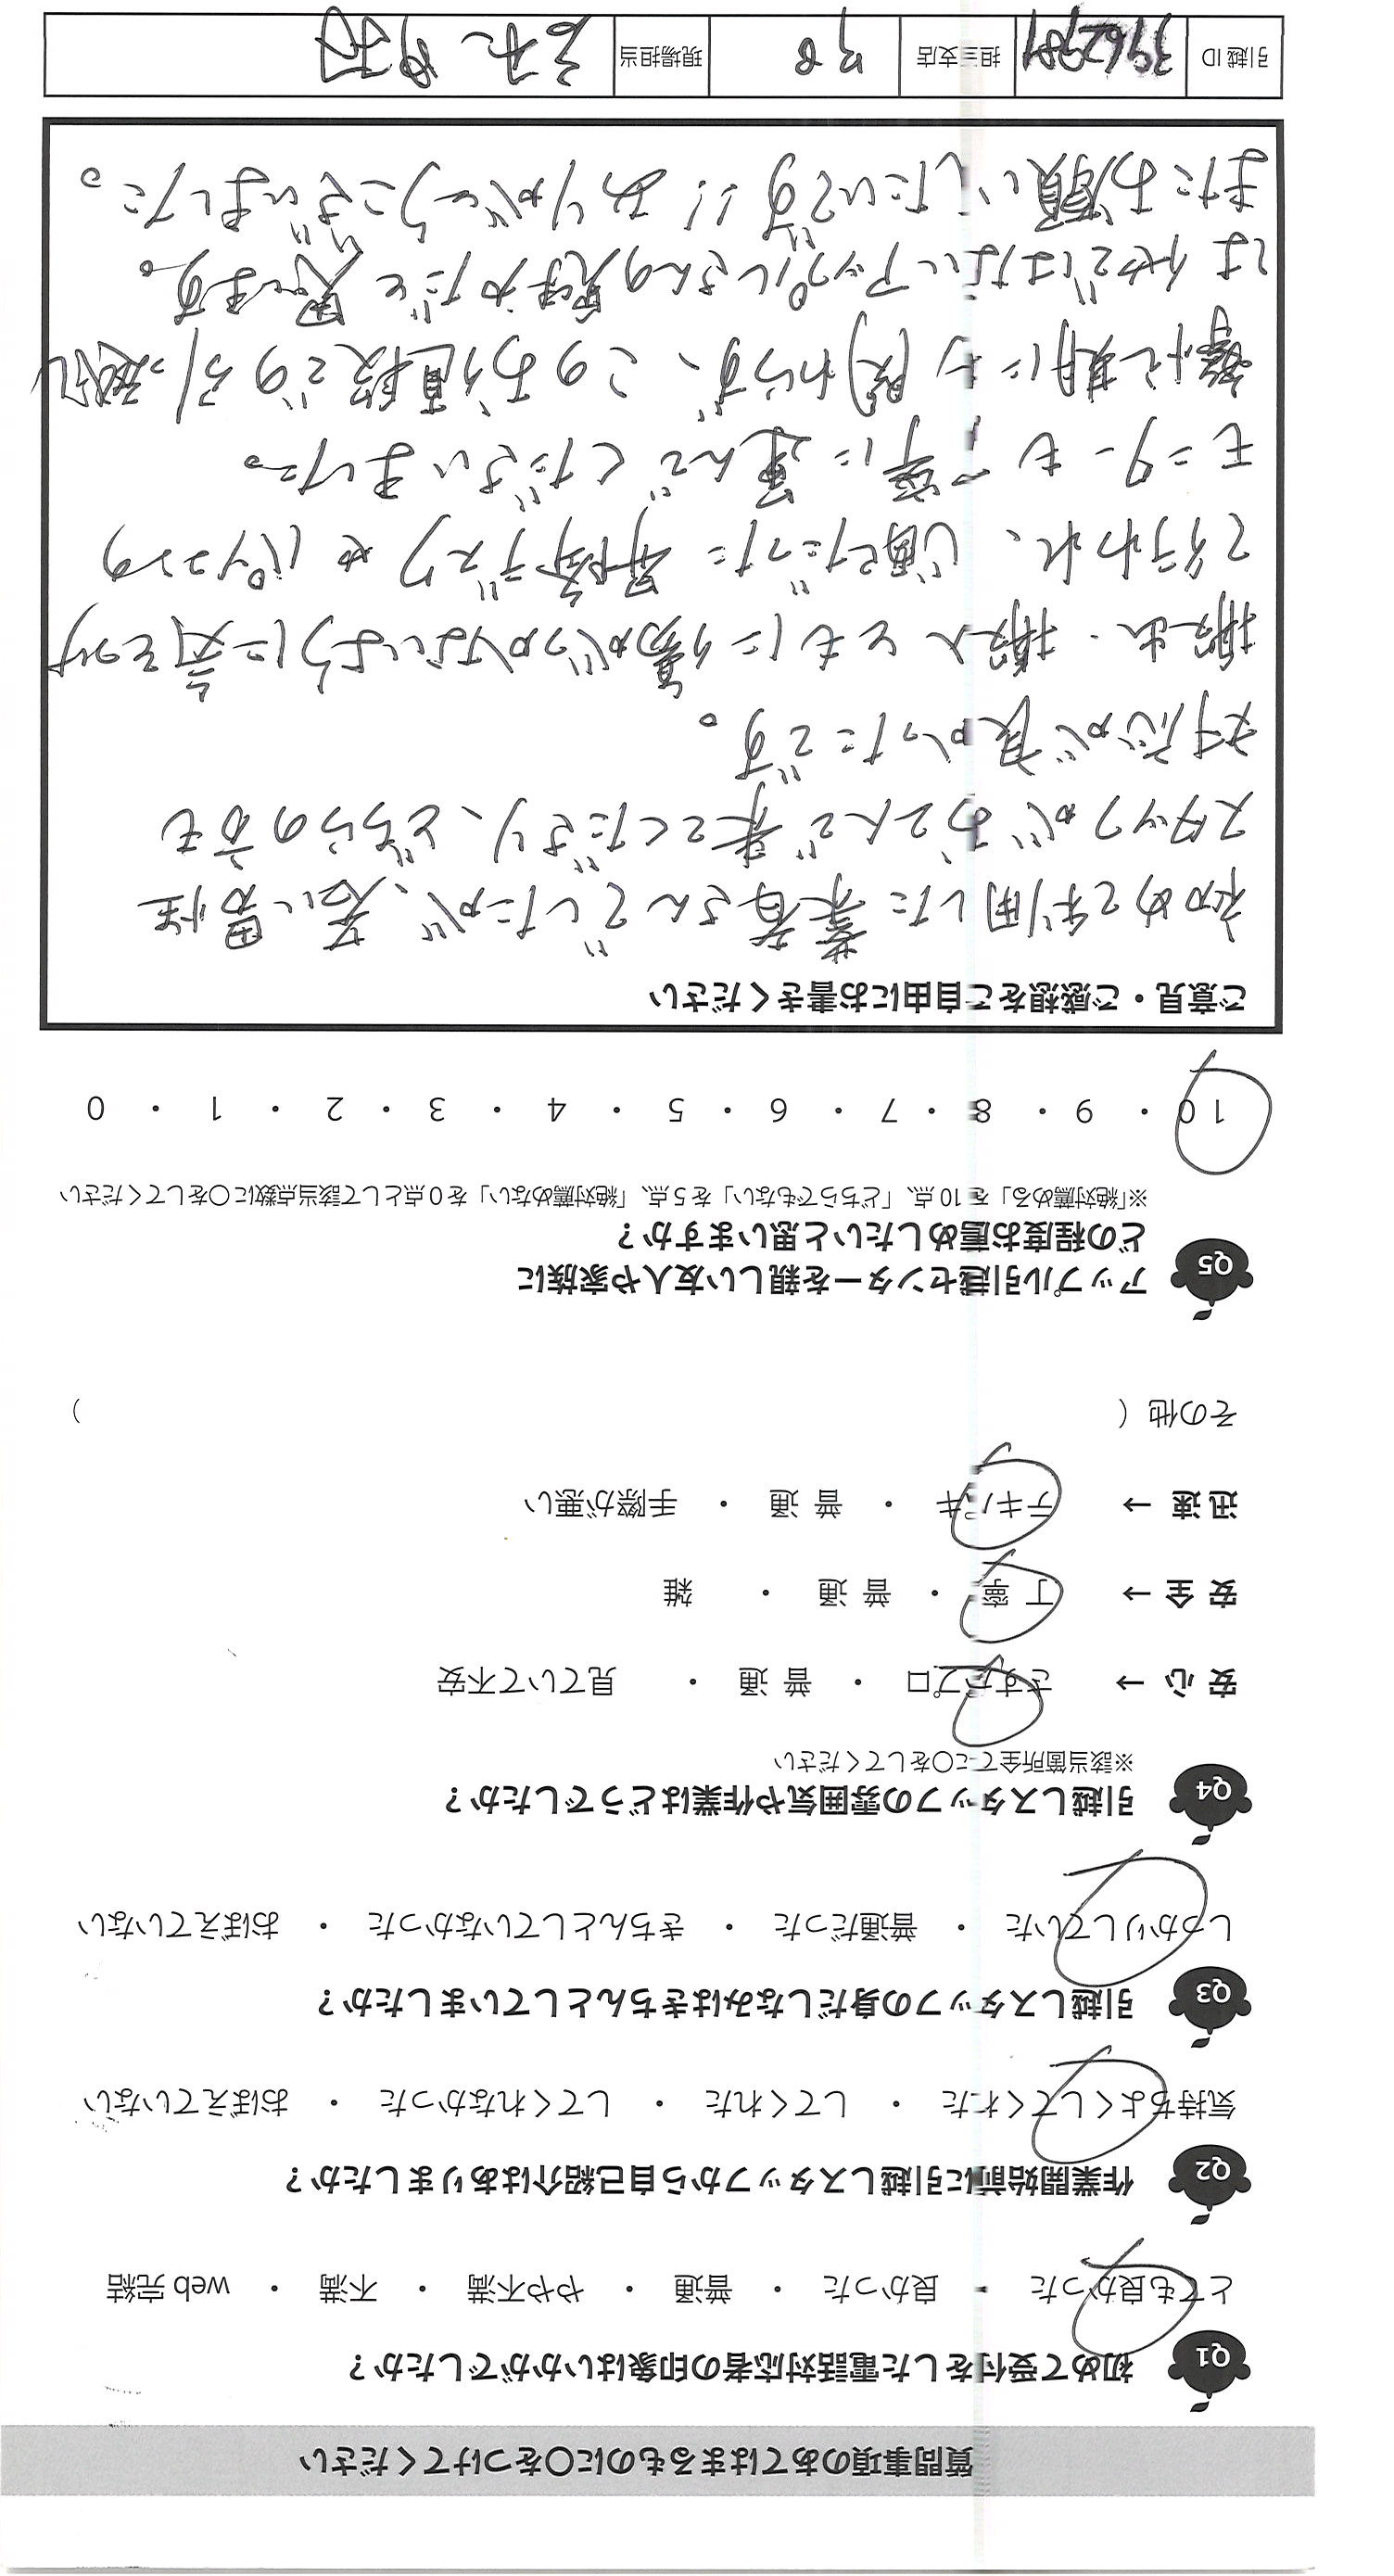 質問事項のあてはまるものに〇をつけてください
Q1 初めて受付をした電話対応者の印象はいかがでしたか？
とても良かった ・ 良かった ・ 普通 ・ やや不満 ・ 不満 ・ web 完結
Q2 作業開始前に引越しスタッフから自己紹介はありましたか？
気持ちよくしてくれた ・ してくれた ・ してくれなかった ・ おぼえていない
Q3 引越しスタッフの身だしなみはきちんとしていましたか？
しっかりしていた ・ 普通だった ・ きちんとしていなかった ・ おぼえていない
Q4 引越しスタッフの雰囲気や作業はどうでしたか？
※該当箇所全てに〇をしてください
安 心 → さすがプロ ・ 普 通 ・ 見ていて不安
安 全 → 丁 寧 ・ 普 通 ・ 雑
迅 速 → テキパキ ・ 普 通 ・ 手際が悪い
その他（ ）
Q5 アップル引越センターを親しい友人や家族に
どの程度お薦めしたいと思いますか？
※「絶対薦める」を 10 点、「どちらでもない」を 5 点、「絶対薦めない」を 0 点として該当点数に〇をしてください
10 ・ 9 ・ 8 ・ 7 ・ 6 ・ 5 ・ 4 ・ 3 ・ 2 ・ 1 ・ 0
ご意見・ご感想をご自由にお書きください
初めて利用した業者さんでしたが、若い男性
スタッフがお2人で来てくださり、どちらの方も
対応が良かったです。
搬出・搬入ともに傷がつかないように気をつけ
て行われ、心配だった昇降デスクやパソコンの
モニターも丁寧に運んでくださいました。
繁忙期にも関わらず、このお値段での引っ越し
は他ではないアップルさんの見味だと思います。
またお願いしたいです!! ありがとうございました。
引越 ID 3962787 担当支店 現場担当